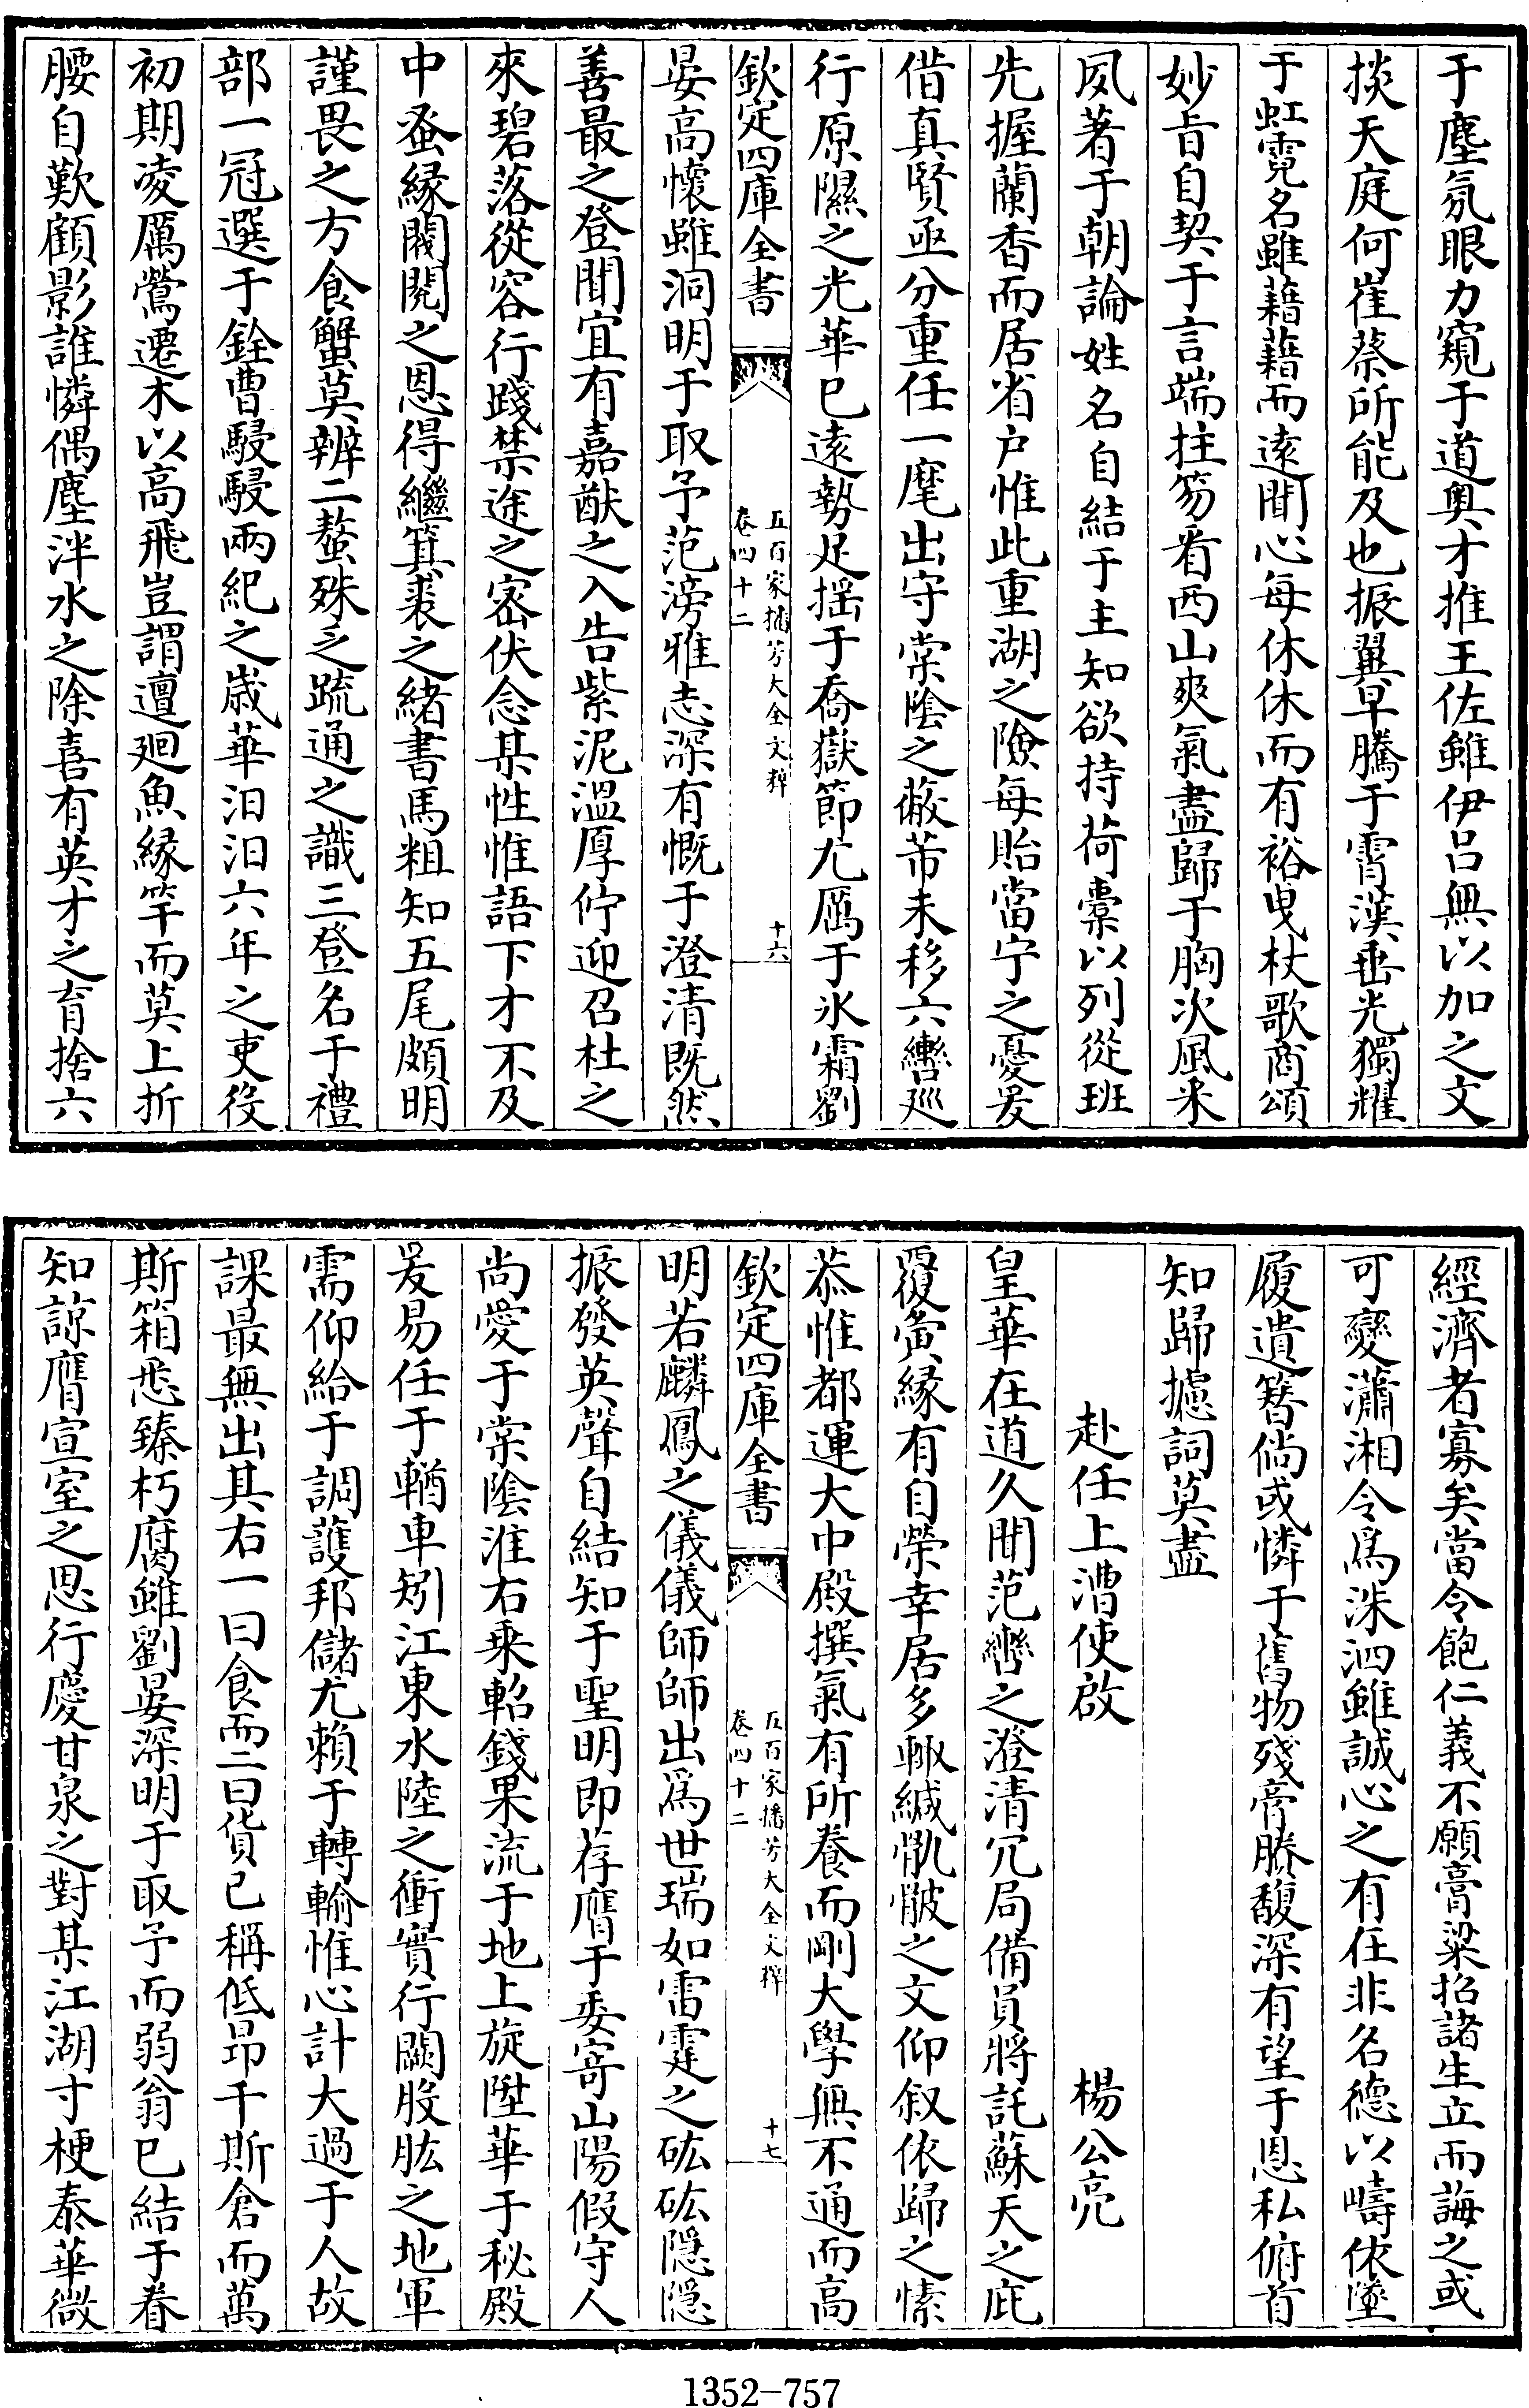 于塵氛眼力窺于道奥才推王佐雖伊吕無以加之文
掞天庭何崔蔡所能及也振翼早騰于霄漢垂光獨耀
于虹霓名雖藉藉而遠聞心每休休而有裕曳杖歌商頌
妙㫖自契于言端拄笏看西山爽氣盡歸于胸次風采
夙著于朝論姓名自結于主知欲持荷橐以列從班
先握蘭香而居省户惟此重湖之險每貽當宁之憂爰
借真賢亟分重任一麾出守棠陰之蔽芾未移六轡廵
行原隰之光華已遠勢足揺于喬嶽節尤厲于氷霜劉
欽定四庫全書
五百家播芳大全文粹
卷四十二
十六
晏高懷雖洞明于取予范滂雅志深有慨于澄清既然
善最之登聞宜有嘉猷之入告紫泥溫厚佇迎召杜之
來碧落從容行踐禁途之宻伏念某性惟語下才不及
中蚤縁閥閲之恩得繼箕裘之緒書馬粗知五尾頗明
謹畏之方食蟹莫辨二螯殊乏疏通之識三登名于禮
部一冠選于銓曹駸駸兩紀之歳華汨汨六年之吏役
初期凌厲鶯遷木以高飛豈謂邅廻魚縁竿而莫上折
腰自歎顧影誰憐偶塵泮水之除喜有英才之育捨六
經濟者寡矣當令飽仁義不願膏粱招諸生立而誨之或
可變瀟湘令為洙泗雖誠心之有在非名德以疇依墜
履遺簪倘或憐于舊物殘膏賸馥深有望于恩私俯首
知歸攄詞莫盡
赴任上漕使啟 楊公亮
皇華在道久聞范轡之澄清冗局備員將託蘇天之庇
覆夤縁有自榮幸居多輙緘骫骳之文仰叙依歸之愫
恭惟都運大中殿撰氣有所養而剛大學無不通而高
欽定四庫全書
五百家播芳大全文粹
卷四十二
十七
明若麟鳳之儀儀師師出為世瑞如雷霆之砿砿隠隠
振發英聲自結知于聖明即荐膺于委寄山陽假守人
尚愛于棠陰淮右乗軺錢果流于地上旋陞華于秘殿
爰易任于輶車矧江東水陸之衝實行闕股肱之地軍
需仰給于調護邦儲尤賴于轉輸惟心計大過于人故
課最無出其右一曰食而二曰貨已稱低昂千斯倉而萬
斯箱悉臻朽腐雖劉晏深明于取予而弱翁已結于眷
知諒膺宣室之思行慶甘泉之對某江湖寸梗泰華微
1352-757